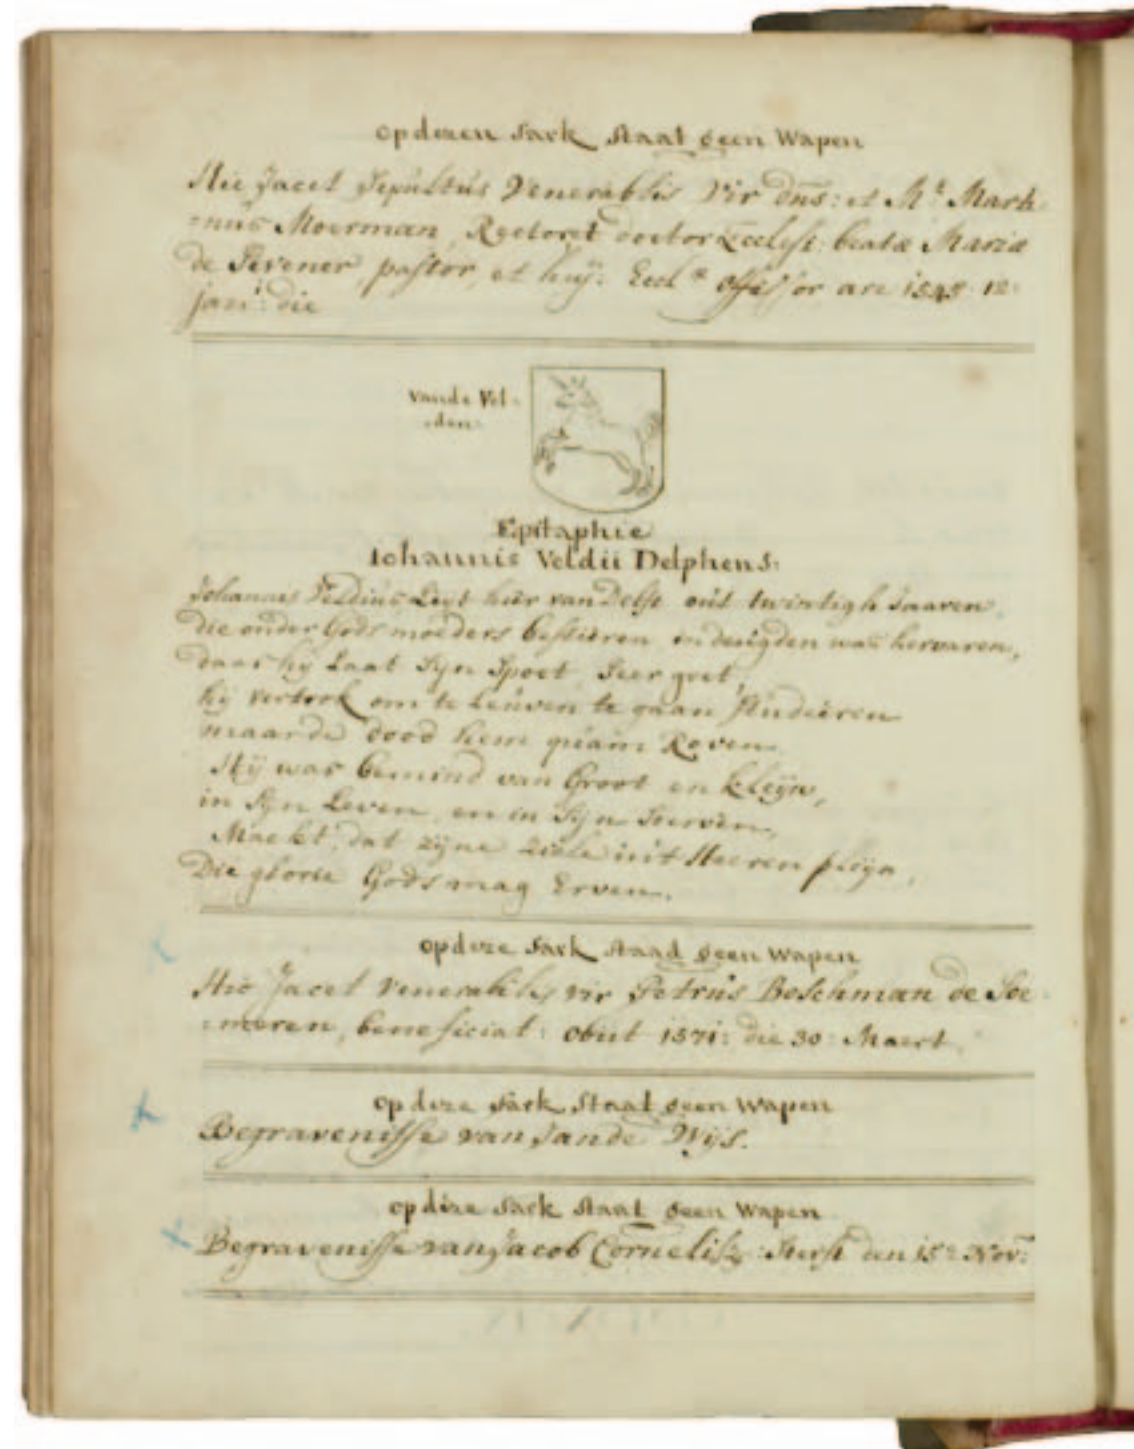 op dezen Sark Staat geen Wapen
Hic Jacet Sepultus Venerablis Vir dns: et Mr. Marti-
=nus Moerman, Rectoret doctor Eeclest: beatæ Mariæ
de pastor, et huy: 12
jan: die
Vande Vel-
=den
Epitaphie
Iohannis Veldii Delphens:
Johannes Veldius Leyt hier van Delft out twintigh Jaaren,
die onder Gods moeders bestieren in deugden was hervaren,
daar hy Laat Syn Spoet Seer groet,
hy vertrok om te Leuven te gaan Studeeren
maar de dood hem quam Roven
Hy was bemind van Groot en kleyn,
in Syn Leven en in Syn Sterven,
Maekt, dat zyne ziele int Heeren pleyn,
Die glorie Gods mag Erven.
op deze Sark Staad geen Wapen
Hic Jacet Venerabilis vir Petrus Boschman de Soe
=meren, beneficiat: obiit 1571: die 30: Maert
op deze Sark Staat geen Wapen
Begravenisse van Jan de Wijs.
op deze Sark Staat geen Wapen
Begravenisse van Jacob Cornelisz: Sterft den 15e Nov: